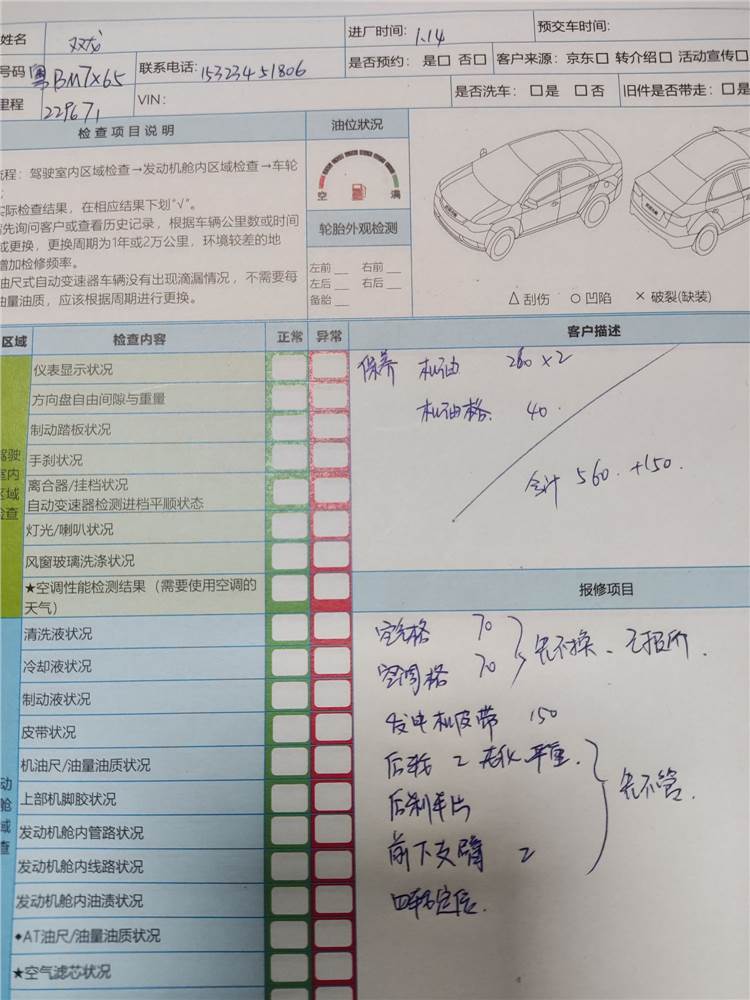 姓名 双龙 进厂时间: 1.14 预交车时间:
号码 粤BM7X65 联系电话: 15323451806 是否预约: 是□ 否□ 客户来源: 京东□ 转介绍□ 活动宣传□
里程 229671 VIN: 是否洗车: □是 □否 旧件是否带走: □是
检查项目说明 油位状况
流程: 驾驶室内区域检查→发动机舱内区域检查→车轮
实际检查结果，在相应结果下划"√"。
先询问客户或查看历史记录，根据车辆公里数或时间
或更换，更换周期为1年或2万公里，环境较差的地
增加检修频率。
油尺式自动变速器车辆没有出现滴漏情况，不需要每
油量油质，应该根据周期进行更换。
空 满
轮胎外观检测
左前 __ 右前 __
左后 __ 右后 __
备胎 __
△ 刮伤 ○ 凹陷 × 破裂(缺装)
区域 检查内容 正常 异常 客户描述
驾驶室内区域检查
仪表显示状况
方向盘自由间隙与重量
制动踏板状况
手刹状况
离合器/挂档状况
自动变速器检测进档平顺状态
灯光/喇叭状况
风窗玻璃洗涤状况
★空调性能检测结果（需要使用空调的
天气）
保养 机油 260×2
机油格. 40.
合计 560. +150.
报修项目
动舱域查
清洗液状况
冷却液状况
制动液状况
皮带状况
机油尺/油量油质状况
上部机脚胶状况
发动机舱内管路状况
发动机舱内线路状况
发动机舱内油渍状况
◆AT油尺/油量油质状况
★空气滤芯状况
空气格 70
空调格 70
先不换、无报价.
发电机皮带 150
后轮 2 老化严重.
后刹车片
前下支臂 2
四轮定位.
先不管.